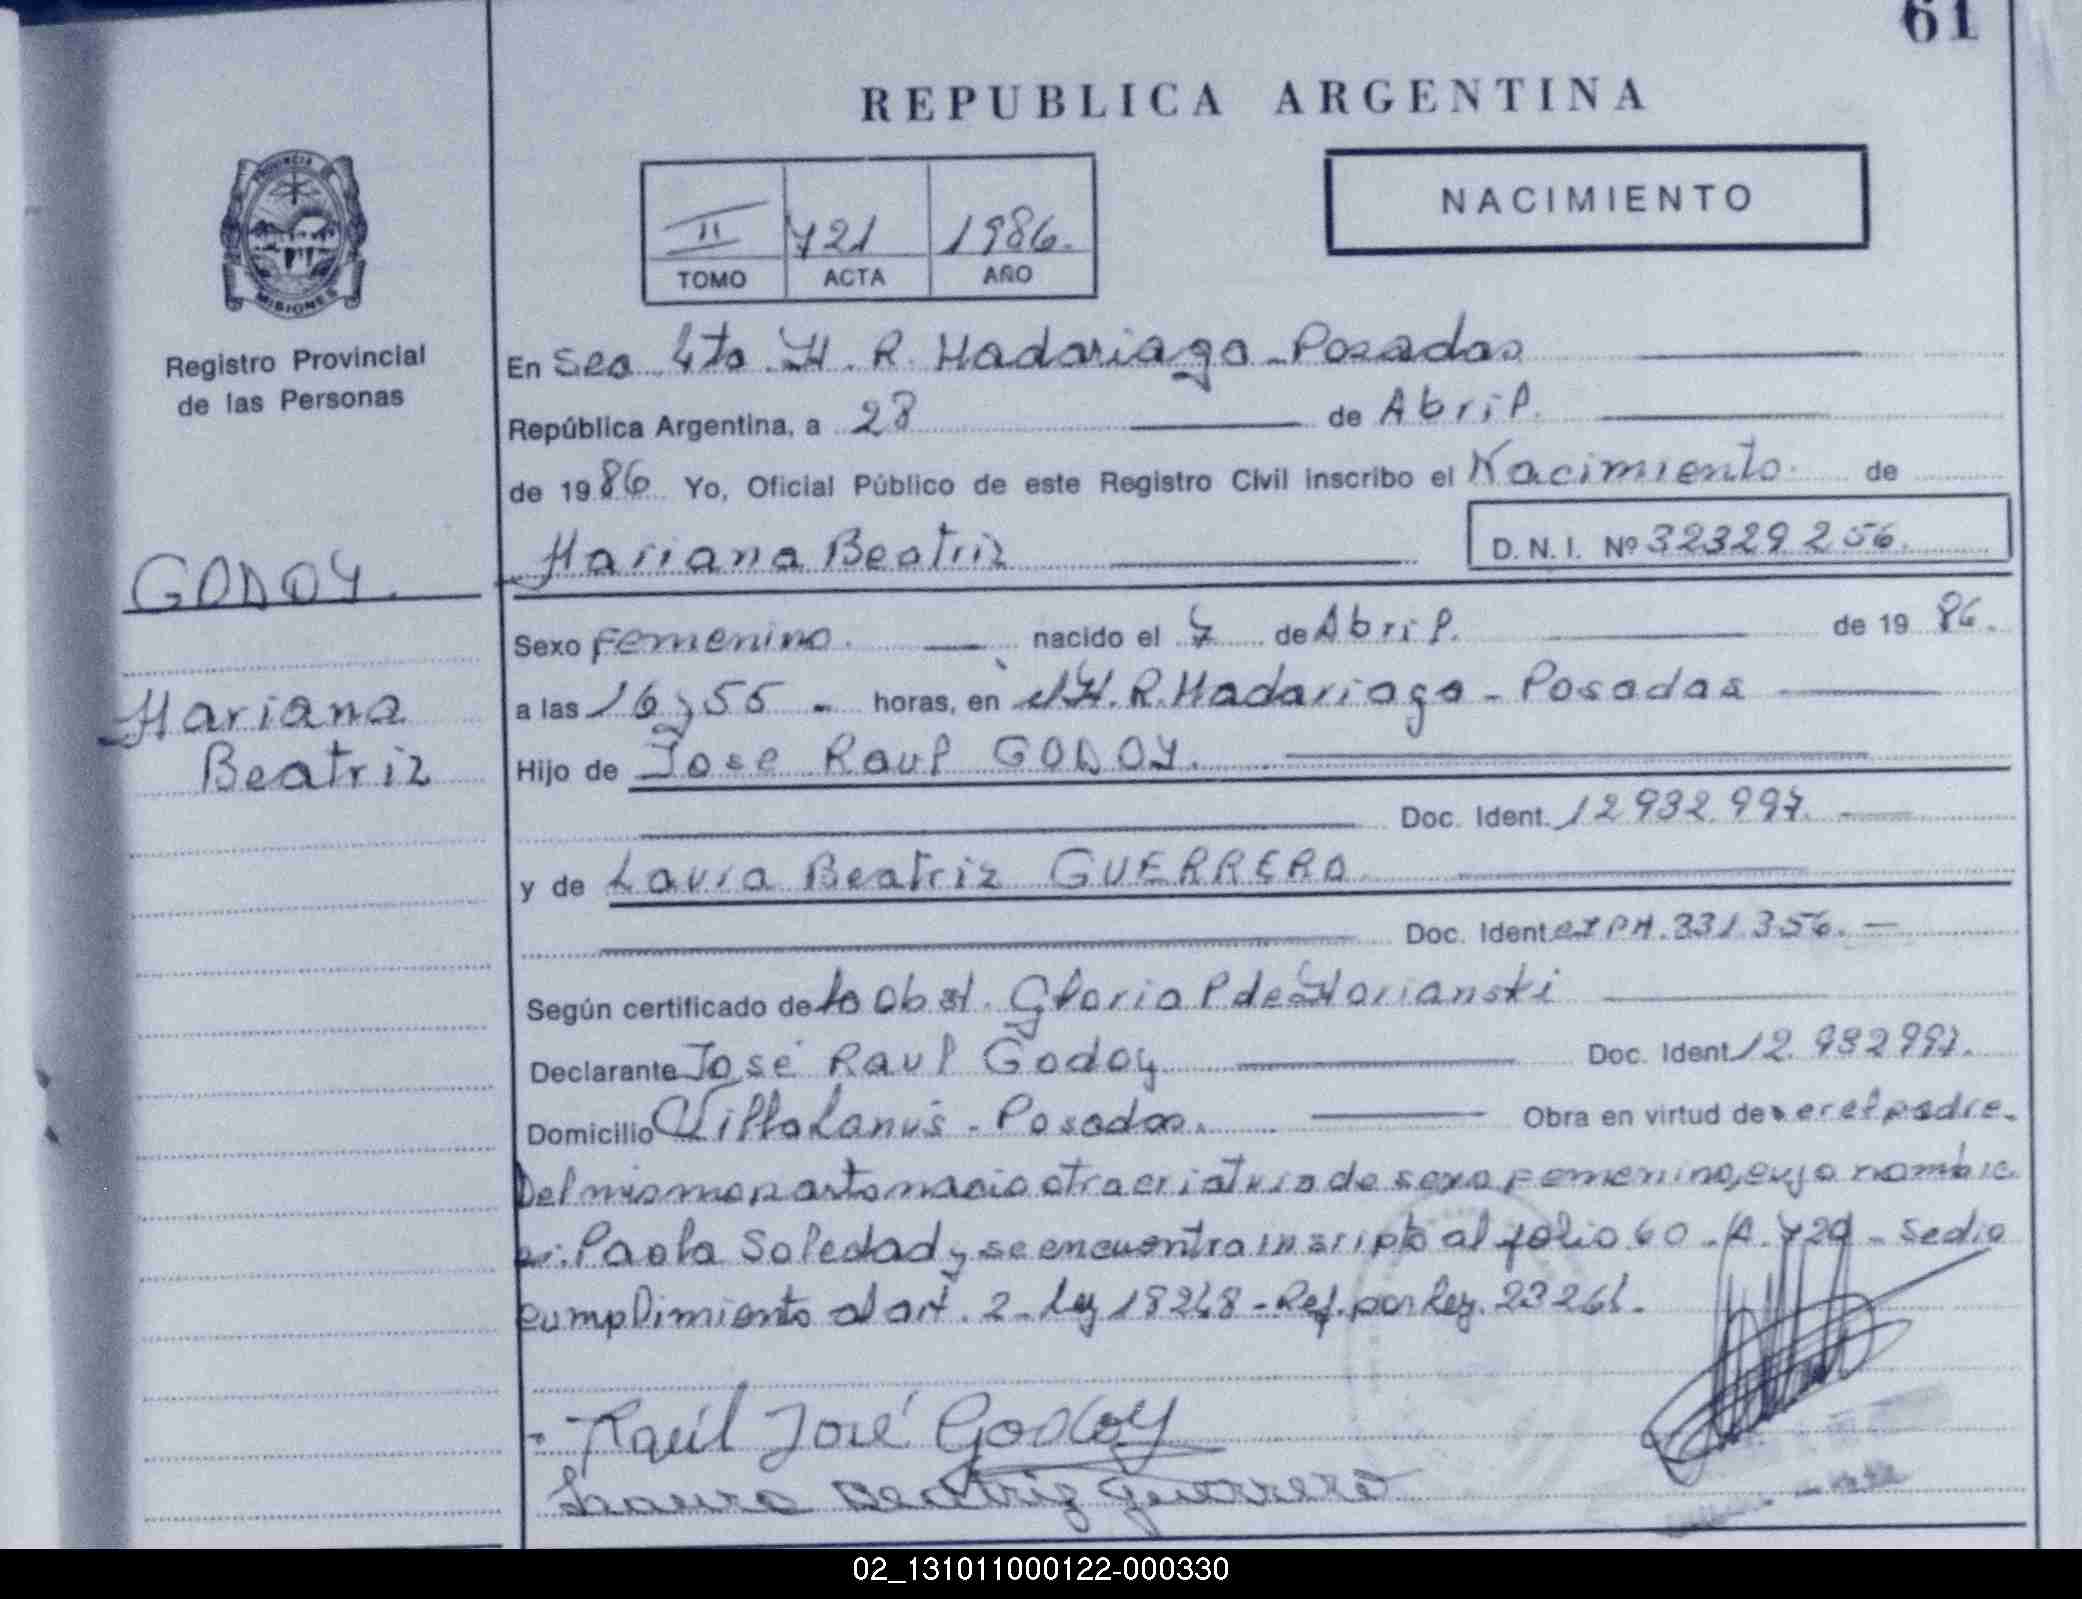 61
REPUBLICA ARGENTINA
NACIMIENTO
II 721 1986.
TOMO ACTA AÑO
PROVINCIA
MISIONES
Registro Provincial
de las Personas
En Sec 4ta H. R. Madariaga - Posadas
República Argentina, a 28 de Abril.
de 1986 Yo, Oficial Público de este Registro Civil inscribo el Nacimiento de
Mariana Beatriz D. N. I. Nº 32329256.
GODOY.
Sexo Femenino. nacido el 7 de Abril. de 1986.
Mariana
Beatriz
a las 16,55 - horas, en el H. R. Madariaga - Posadas
Hijo de Jose Raul GODOY.
Doc. Ident. 12932.997.
y de Laura Beatriz GUERRERO
Doc. Ident 331.356. -
Según certificado de la Obst. Gloria P de
Declarante José Raul Godoy Doc. Ident 12.932997.
Domicilio Villa Lanús - Posadas. Obra en virtud de ser el padre.
Del mismo parto nacio otra criatura de sexo Femenino, cuyo nombre
es: Paola Soledad y se encuentra inscripto al folio 60 - A. 720 - Se dio
cumplimiento al art. 2 - Ley 18248 - Ref. por Ley. 23264.
Raúl José Godoy
Laura Beatriz Guerrero
02_131011000122-000330